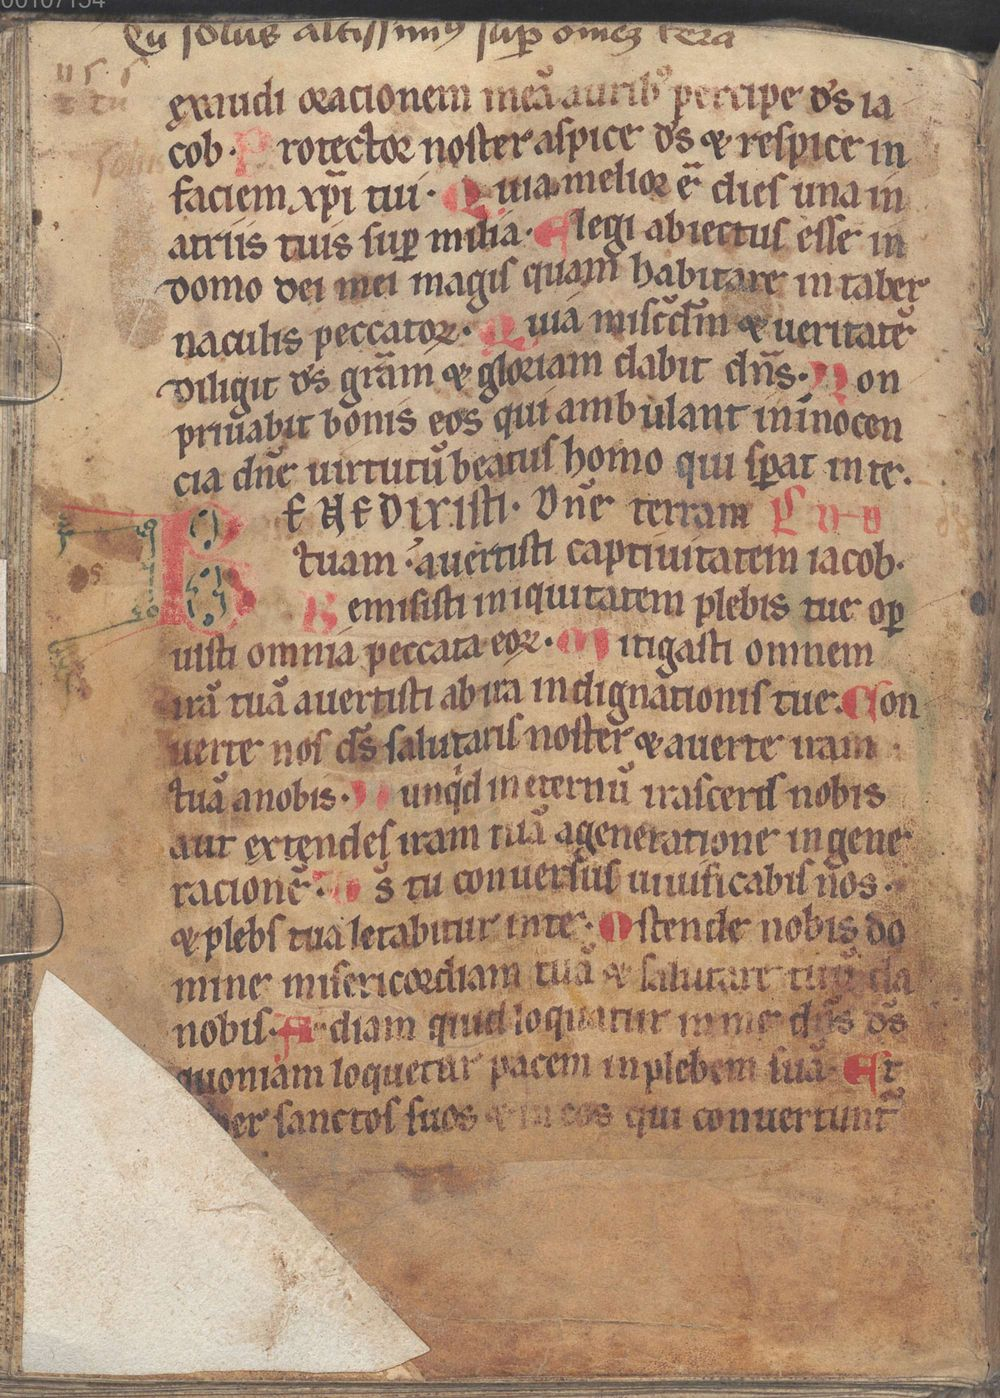 00107154
Tu solus altissimꝰ suꝑ omēꝫ terā
exaudi oracionem meā auribꝰ percipe ds̄ ia
cob · Protector noster aspice ds̄ ⁊ respice in
faciem xp̄i tui · Quia melior ē dies una in
atriis tuis suꝑ milia · Elegi abiectus esse in
domo dei mei magis quam habitare in taber
naculis peccatoꝝ · Quia mis̄c̄d̄m ⁊ veritatē
Diligit ds̄ grām ⁊ gloriam dabit dn̄s · Non
privabit bonis eos qui ambulant in īnocen
cia dn̄e uirtutū beatus homo qui sꝑat in te ·
BENEDIXISTI · Dn̄e terram
tuam · avertisti captiuitatem iacob ·
Remisisti iniquitatem plebis tue oꝑ
uisti omnia peccata eoꝝ · Mitigasti omnem
irā tuā avertisti ab ira indignationis tue · Con
verte nos ds̄ salutaris noster ⁊ averte iram
tuā a nobis · Nunq̇d in eternū irasceris nobis
aut extendes iram tuā a generatione in gene
racionē · Ds̄ tu conversus uiuificabis nos ·
⁊ plebs tua letabitur in te · Ostende nobis do
mine misericordiam tuā ⁊ salutare tuū da
nobis · Audiam quid loquatur in me dn̄s ds̄
quoniam loquetur pacem in plebem suā · Et
per sanctos suos ⁊ in eos qui convertunt᷑